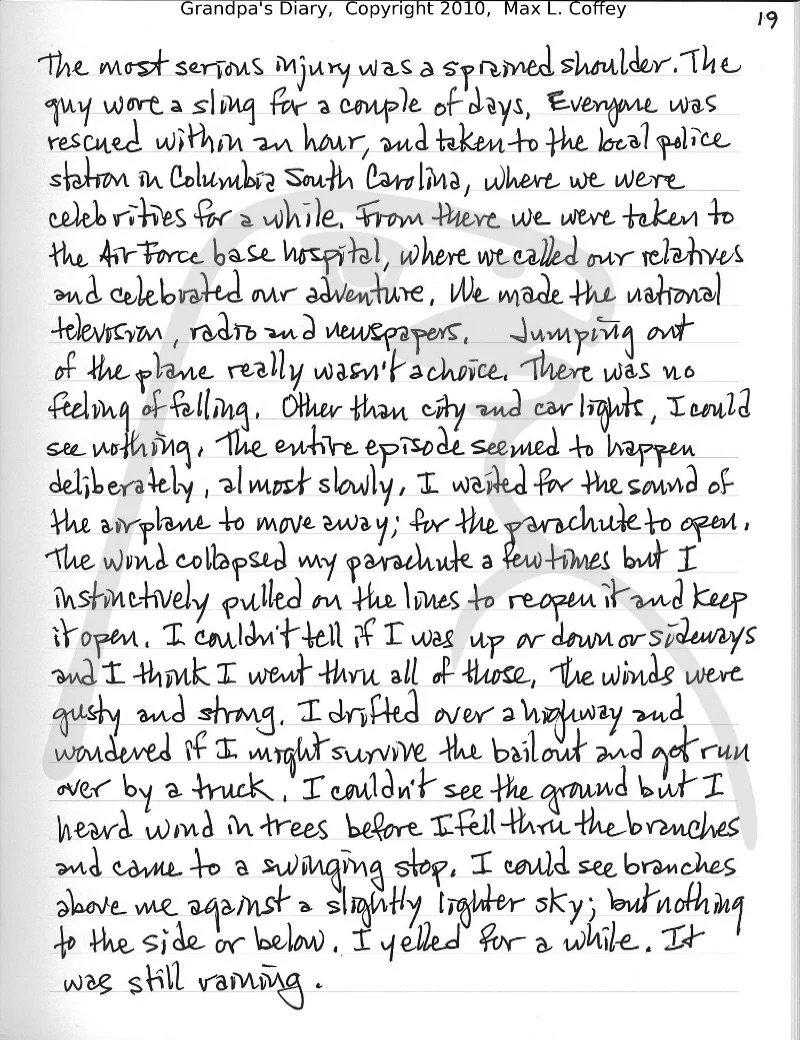 Grandpa's Diary, Copyright 2010, Max L. Coffey
19
The most serious injury was a sprained shoulder. The
guy wore a sling for a couple of days. Everyone was
rescued within an hour, and taken to the local police
station in Columbia South Carolina, where we were
celebrities for a while. From there we were taken to
the Air Force base hospital, where we called our relatives
and celebrated our adventure. We made the national
television, radio and newspapers. Jumping out
of the plane really wasn't a choice. There was no
feeling of falling. Other than city and car lights, I could
see nothing. The entire episode seemed to happen
deliberately, almost slowly. I waited for the sound of
the airplane to move away; for the parachute to open.
The wind collapsed my parachute a few times but I
instinctively pulled on the lines to reopen it and keep
it open. I couldn't tell if I was up or down or sideways
and I think I went thru all of those. The winds were
gusty and strong. I drifted over a highway and
wondered if I might survive the bailout and get run
over by a truck. I couldn't see the ground but I
heard wind in trees before I fell thru the branches
and came to a swinging stop. I could see branches
above me against a slightly lighter sky; but nothing
to the side or below. I yelled for a while. It
was still raining.